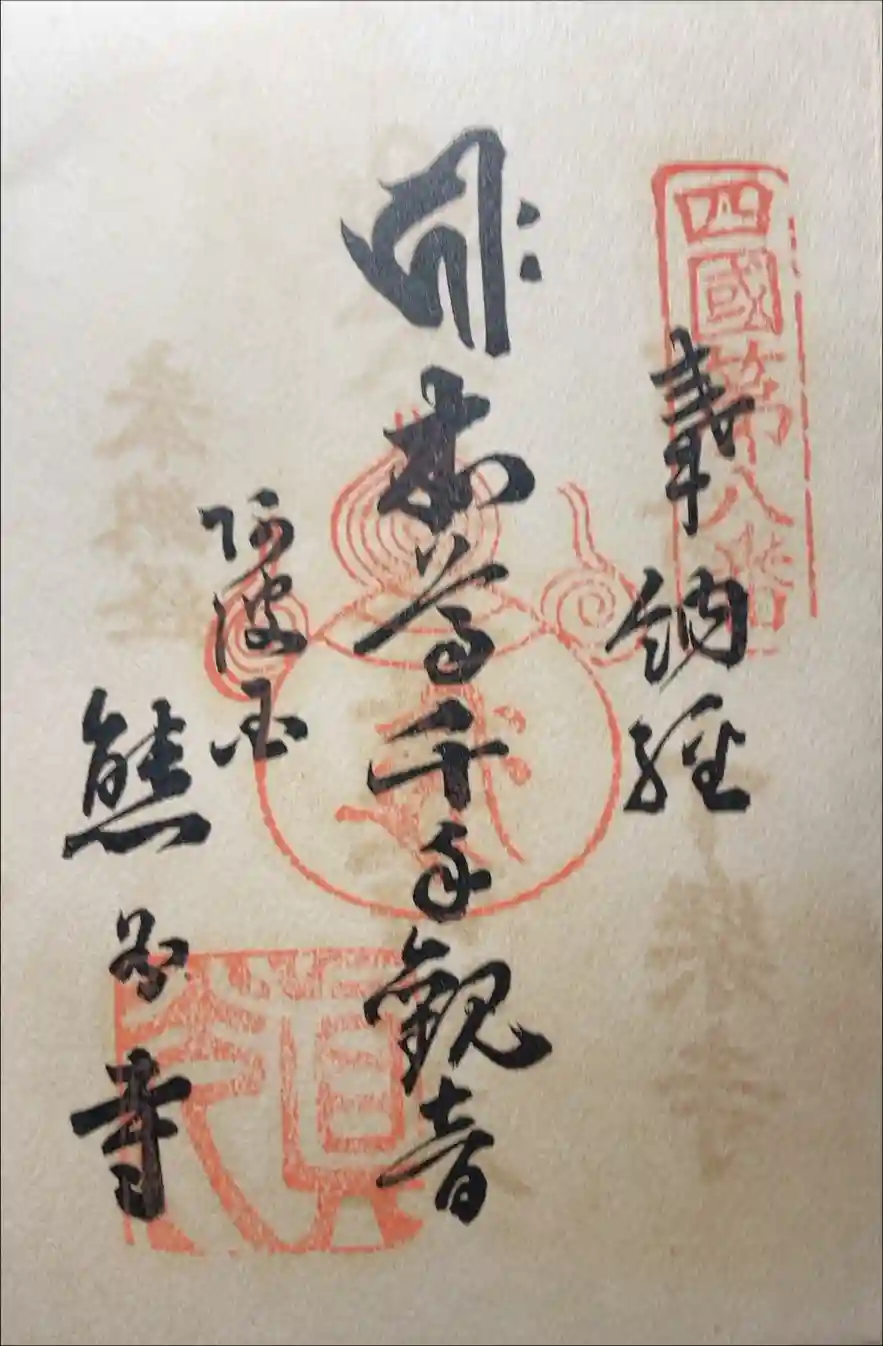 四國第八番
奉納經
𑖮𑖿𑖨𑖱𑖾 本尊千手観音
阿波国
熊谷寺